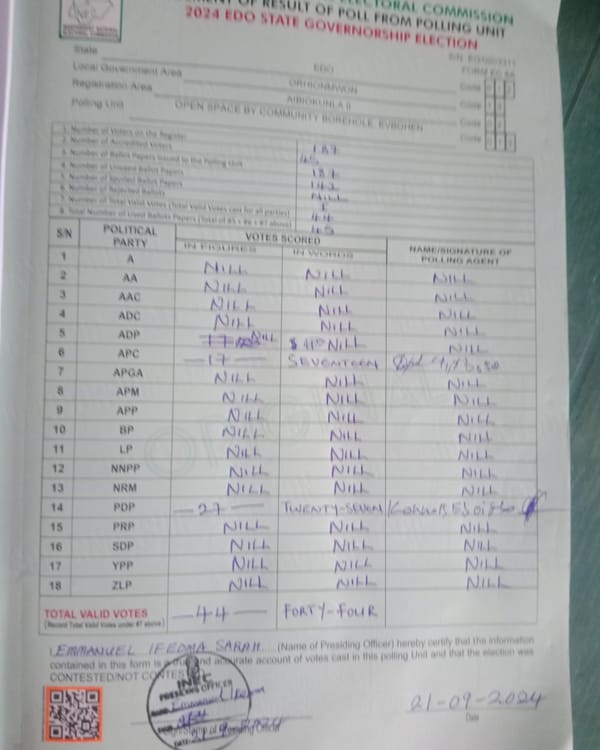 ELECTORAL COMMISSION
OF RESULT OF POLL FROM POLLING UNIT
2024 EDO STATE GOVERNORSHIP ELECTION
State EDO
Local Government Area ORHIONMWON Code
Registration Area AIBIOKUNLA II Code
Polling Unit OPEN SPACE BY COMMUNITY BOREHOLE, EVBOHEN Code
1. Number of Voters on the Register 187
2. Number of Accredited Voters 45
3. Number of Ballot Papers Issued to the Polling Unit 187
4. Number of Unused Ballot Papers 142
5. Number of Spoiled Ballot Papers NILL
6. Number of Rejected Ballots 1
7. Number of Total Valid Votes (Total Valid Votes cast for all parties) 44
8. Total Number of Used Ballots Papers (Total of #5 + #6 + #7 above) 45
S/N POLITICAL PARTY VOTES SCORED NAME/SIGNATURE OF POLLING AGENT
IN FIGURES IN WORDS
1 A NILL NILL NILL
2 AA NILL NILL NILL
3 AAC NILL NILL NILL
4 ADC NILL NILL NILL
5 ADP NILL NILL NILL
6 APC —17— SEVENTEEN
7 APGA NILL NILL NILL
8 APM NILL NILL NILL
9 APP NILL NILL NILL
10 BP NILL NILL NILL
11 LP NILL NILL NILL
12 NNPP NILL NILL NILL
13 NRM NILL NILL NILL
14 PDP —27— TWENTY-SEVEN
15 PRP NILL NILL NILL
16 SDP NILL NILL NILL
17 YPP NILL NILL NILL
18 ZLP NILL NILL NILL
TOTAL VALID VOTES —44— FORTY-FOUR
(Record Total Valid Votes under #7 above)
I, EMMANUEL IFEOMA SARAH (Name of Presiding Officer) hereby certify that the information
contained in this form is a true and accurate account of votes cast in this polling Unit and that the election was
CONTESTED/NOT CONTESTED
INEC
PRESIDING OFFICER
21-09-2024
Date